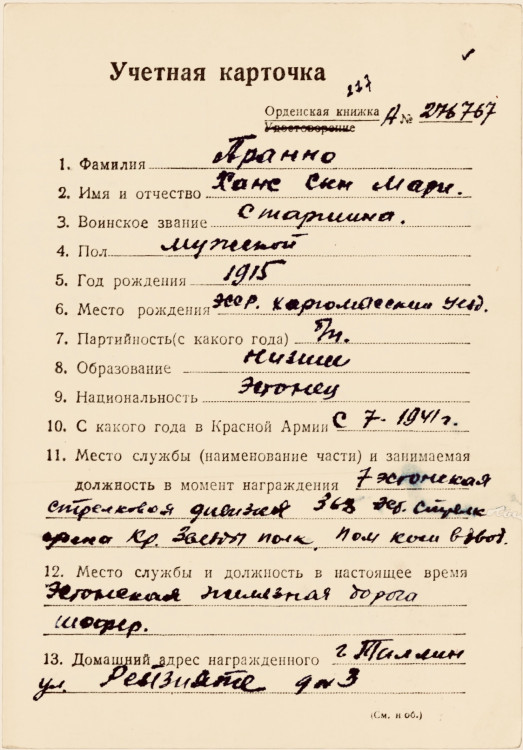 Учетная карточка
Орденская книжка А № 276767
Удостоверение
1. Фамилия Пранно
2. Имя и отчество Ханс сын Мари.
3. Воинское звание Старшина.
4. Пол мужской
5. Год рождения 1915
6. Место рождения
7. Партийность(с какого года) б/п.
8. Образование низшее
9. Национальность Эстонец
10. С какого года в Красной Армии С 7-1941 г.
11. Место службы (наименование части) и занимаемая
должность в момент награждения 7 Эстонская
стрелковая дивизия Эст. Стрелк
Кр. Звезды полк. Пом ком взвод.
12. Место службы и должность в настоящее время
Эстонская железная дорога
шофер.
13. Домашний адрес награжденного г. Таллин
ул. 3
(См. н об.)